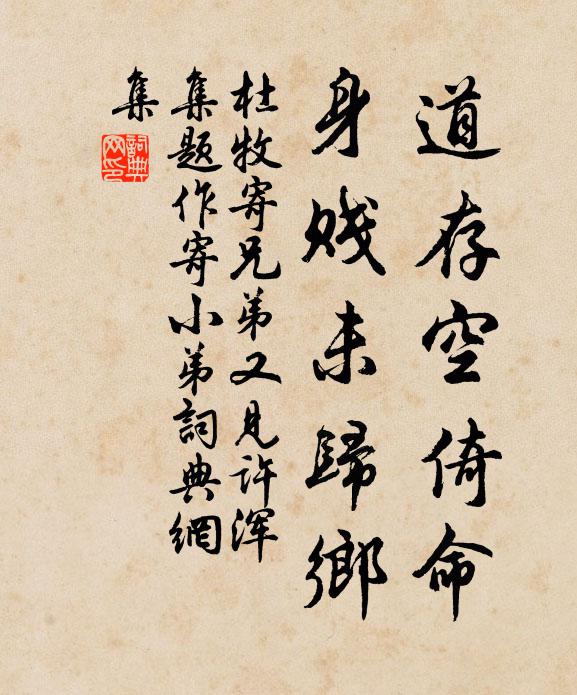 道存空倚命
身贱未歸鄉
杜牧寄兄弟又見许浑
集题作寄小弟詞典網
集
詞典
网印